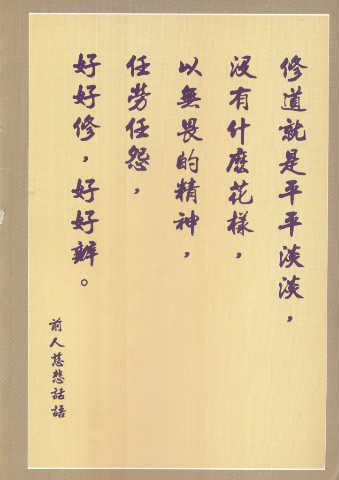 修道就是平平淡淡，
沒有什麼花樣，
以無畏的精神，
任勞任怨，
好好修，好好辦。
前人慈悲話語